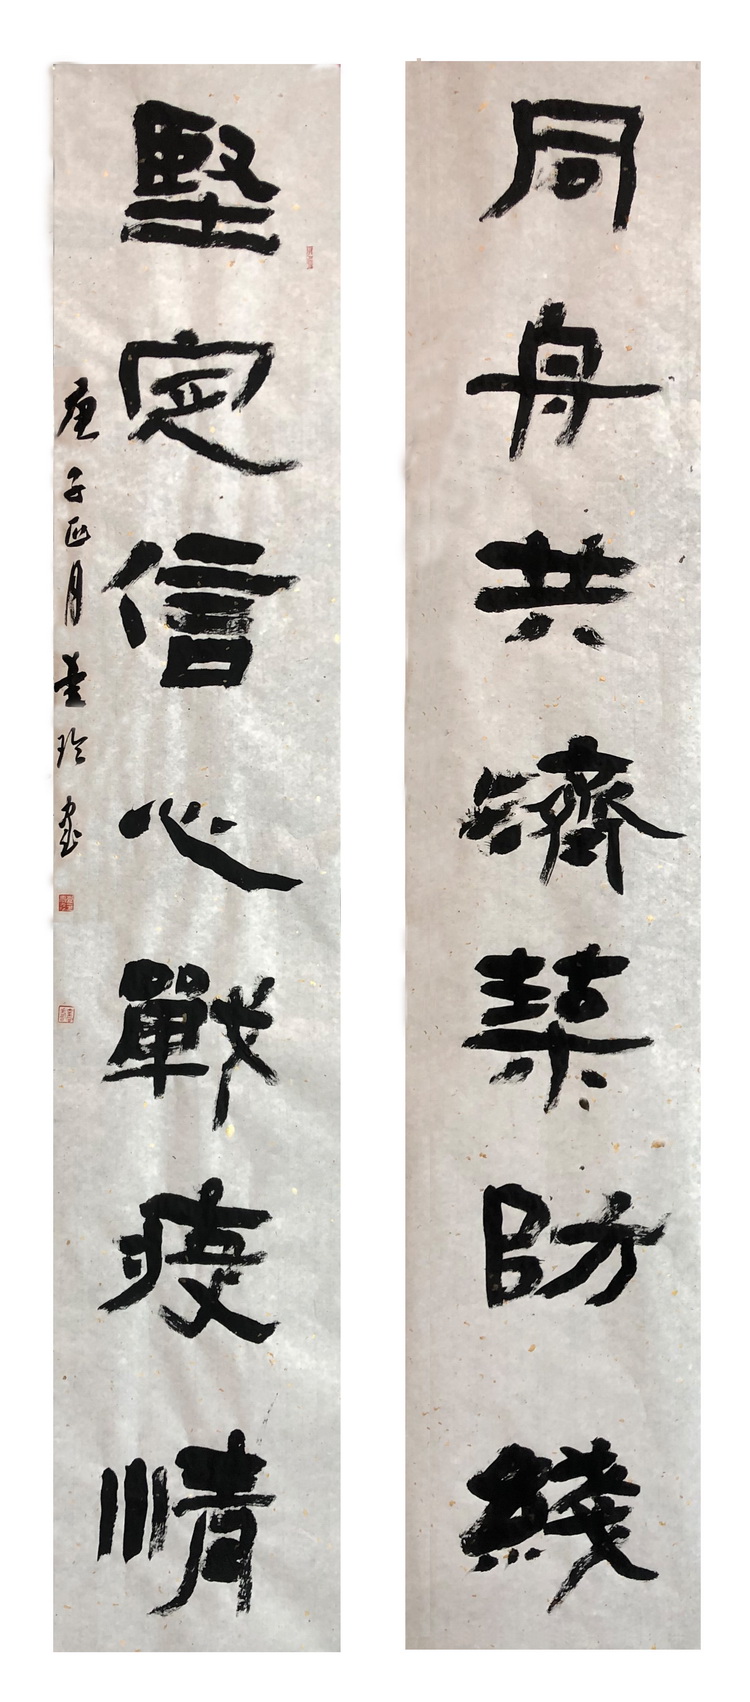 同舟共濟築防綫
堅定信心戰疫情
庚子正月